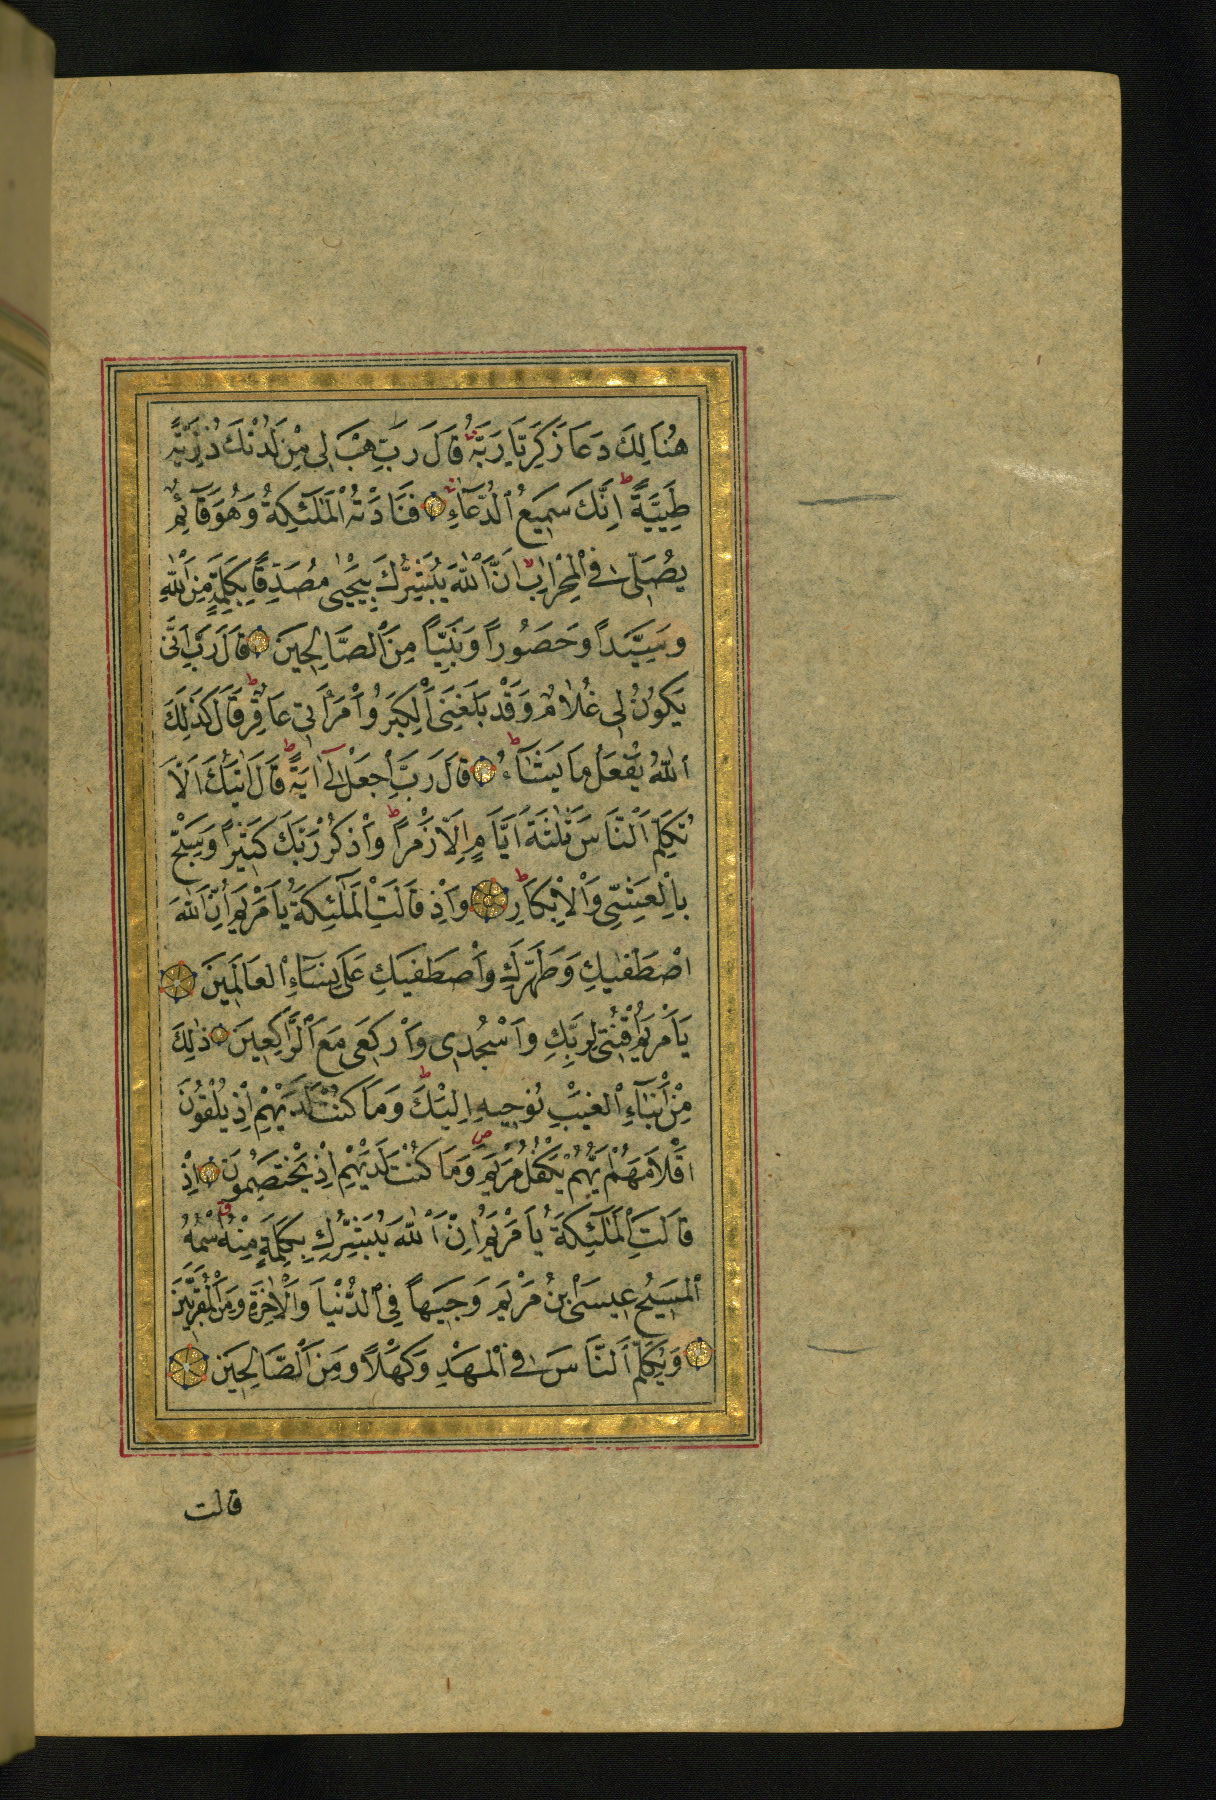 هُنَالِكَ دَعَا زَكَرِيَّا رَبَّهُ قَالَ رَبِّ هَبْ لِي مِنْ لَدُنْكَ ذُرِّيَّةً
طَيِّبَةً اِنَّكَ سَمِيعُ الدُّعَآءِ فَنَادَتْهُ الْمَلٰٓئِكَةُ وَهُوَ قَآئِمٌ
يُصَلِّي فِي الْمِحْرَابِ اَنَّ اللّٰهَ يُبَشِّرُكَ بِيَحْيٰى مُصَدِّقًا بِكَلِمَةٍ مِنَ اللّٰهِ
وَسَيِّدًا وَحَصُورًا وَنَبِيًّا مِنَ الصَّالِحِينَ قَالَ رَبِّ اَنّٰى
يَكُونُ لِي غُلَامٌ وَقَدْ بَلَغَنِيَ الْكِبَرُ وَامْرَاَتِي عَاقِرٌ قَالَ كَذٰلِكَ
اللّٰهُ يَفْعَلُ مَا يَشَآءُ قَالَ رَبِّ اجْعَلْ لِيٓ اٰيَةً قَالَ اٰيَتُكَ اَلَّا
تُكَلِّمَ النَّاسَ ثَلٰثَةَ اَيَّامٍ اِلَّا رَمْزًا وَاذْكُرْ رَبَّكَ كَثِيرًا وَسَبِّحْ
بِالْعَشِيِّ وَالْاِبْكَارِ وَاِذْ قَالَتِ الْمَلٰٓئِكَةُ يَا مَرْيَمُ اِنَّ اللّٰهَ
اصْطَفٰيكِ وَطَهَّرَكِ وَاصْطَفٰيكِ عَلٰى نِسَآءِ الْعَالَمِينَ
يَا مَرْيَمُ اقْنُتِي لِرَبِّكِ وَاسْجُدِي وَارْكَعِي مَعَ الرَّاكِعِينَ ذٰلِكَ
مِنْ اَنْبَآءِ الْغَيْبِ نُوحِيهِ اِلَيْكَ وَمَا كُنْتَ لَدَيْهِمْ اِذْ يُلْقُونَ
اَقْلَامَهُمْ اَيُّهُمْ يَكْفُلُ مَرْيَمَ وَمَا كُنْتَ لَدَيْهِمْ اِذْ يَخْتَصِمُونَ اِذْ
قَالَتِ الْمَلٰٓئِكَةُ يَا مَرْيَمُ اِنَّ اللّٰهَ يُبَشِّرُكِ بِكَلِمَةٍ مِنْهُ اسْمُهُ
الْمَسِيحُ عِيسَى ابْنُ مَرْيَمَ وَجِيهًا فِي الدُّنْيَا وَالْاٰخِرَةِ وَمِنَ الْمُقَرَّبِينَ
وَيُكَلِّمُ النَّاسَ فِي الْمَهْدِ وَكَهْلًا وَمِنَ الصَّالِحِينَ
قالت